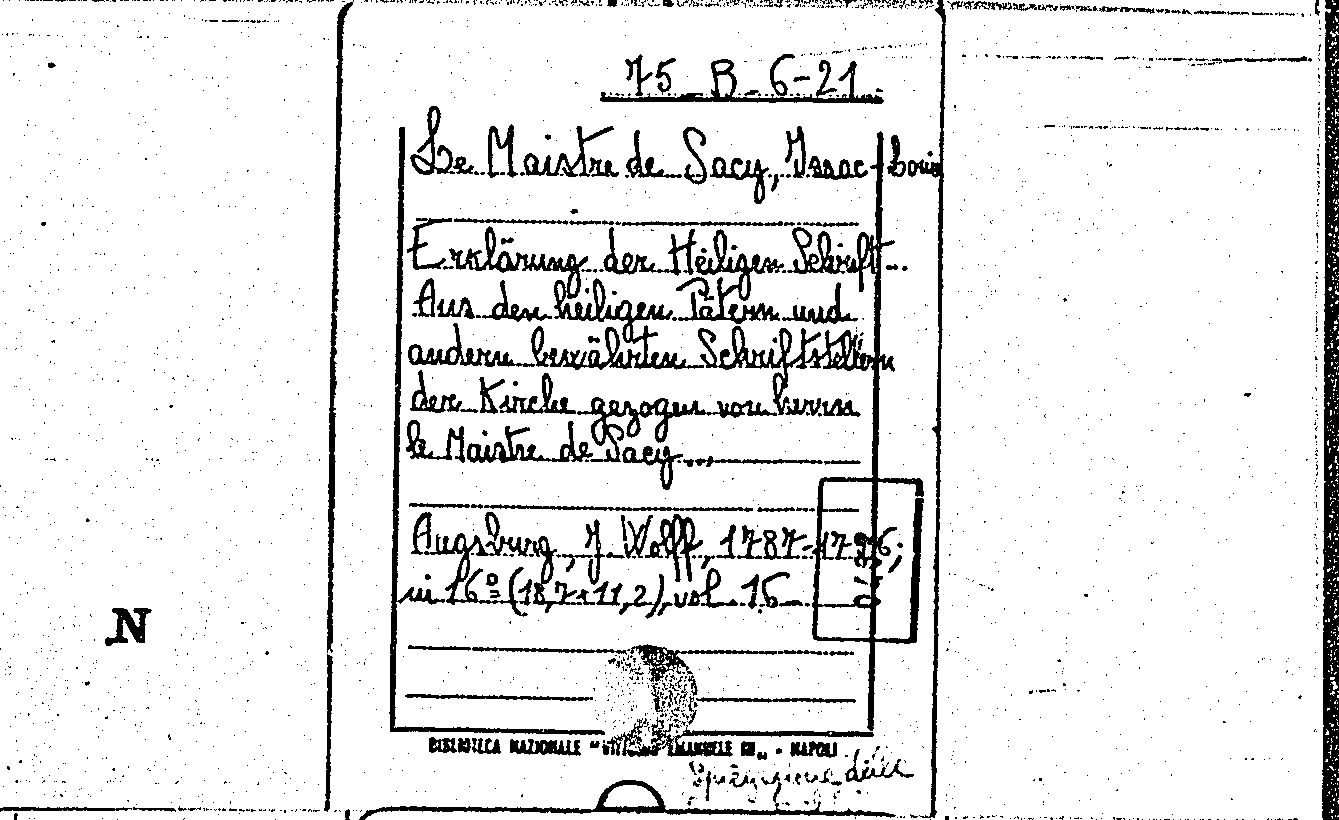 75 B - 6 - 21
Le Maistre de Sacy, Isaac-Louis
Erklärung der Heiligen Schrift...
Aus den heiligen Vätern und
andern bewährten Schriftstellern
der Kirche gezogen von herrn
le Maistre de Sacy...,
Augsburg, J. Wolff, 1787-1796;
in 16º (18,7×11,2), vol. 16
N
BIBLIOTECA NAZIONALE "VITTORIO EMANUELE III" - NAPOLI